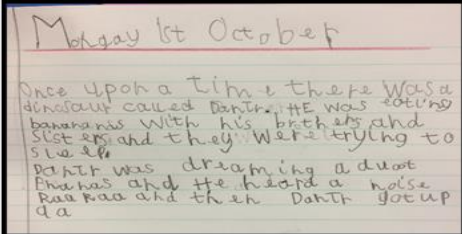 Monday 1st October
Once upon a time there was a
dinosaur called Dantr. HE was eating
bananas with his brothers and
Sisters and they were trying to
sleep.
Dantr was dreaming aduot
Bnanas and He heard a noise
Raa Raa and then Dantr got up